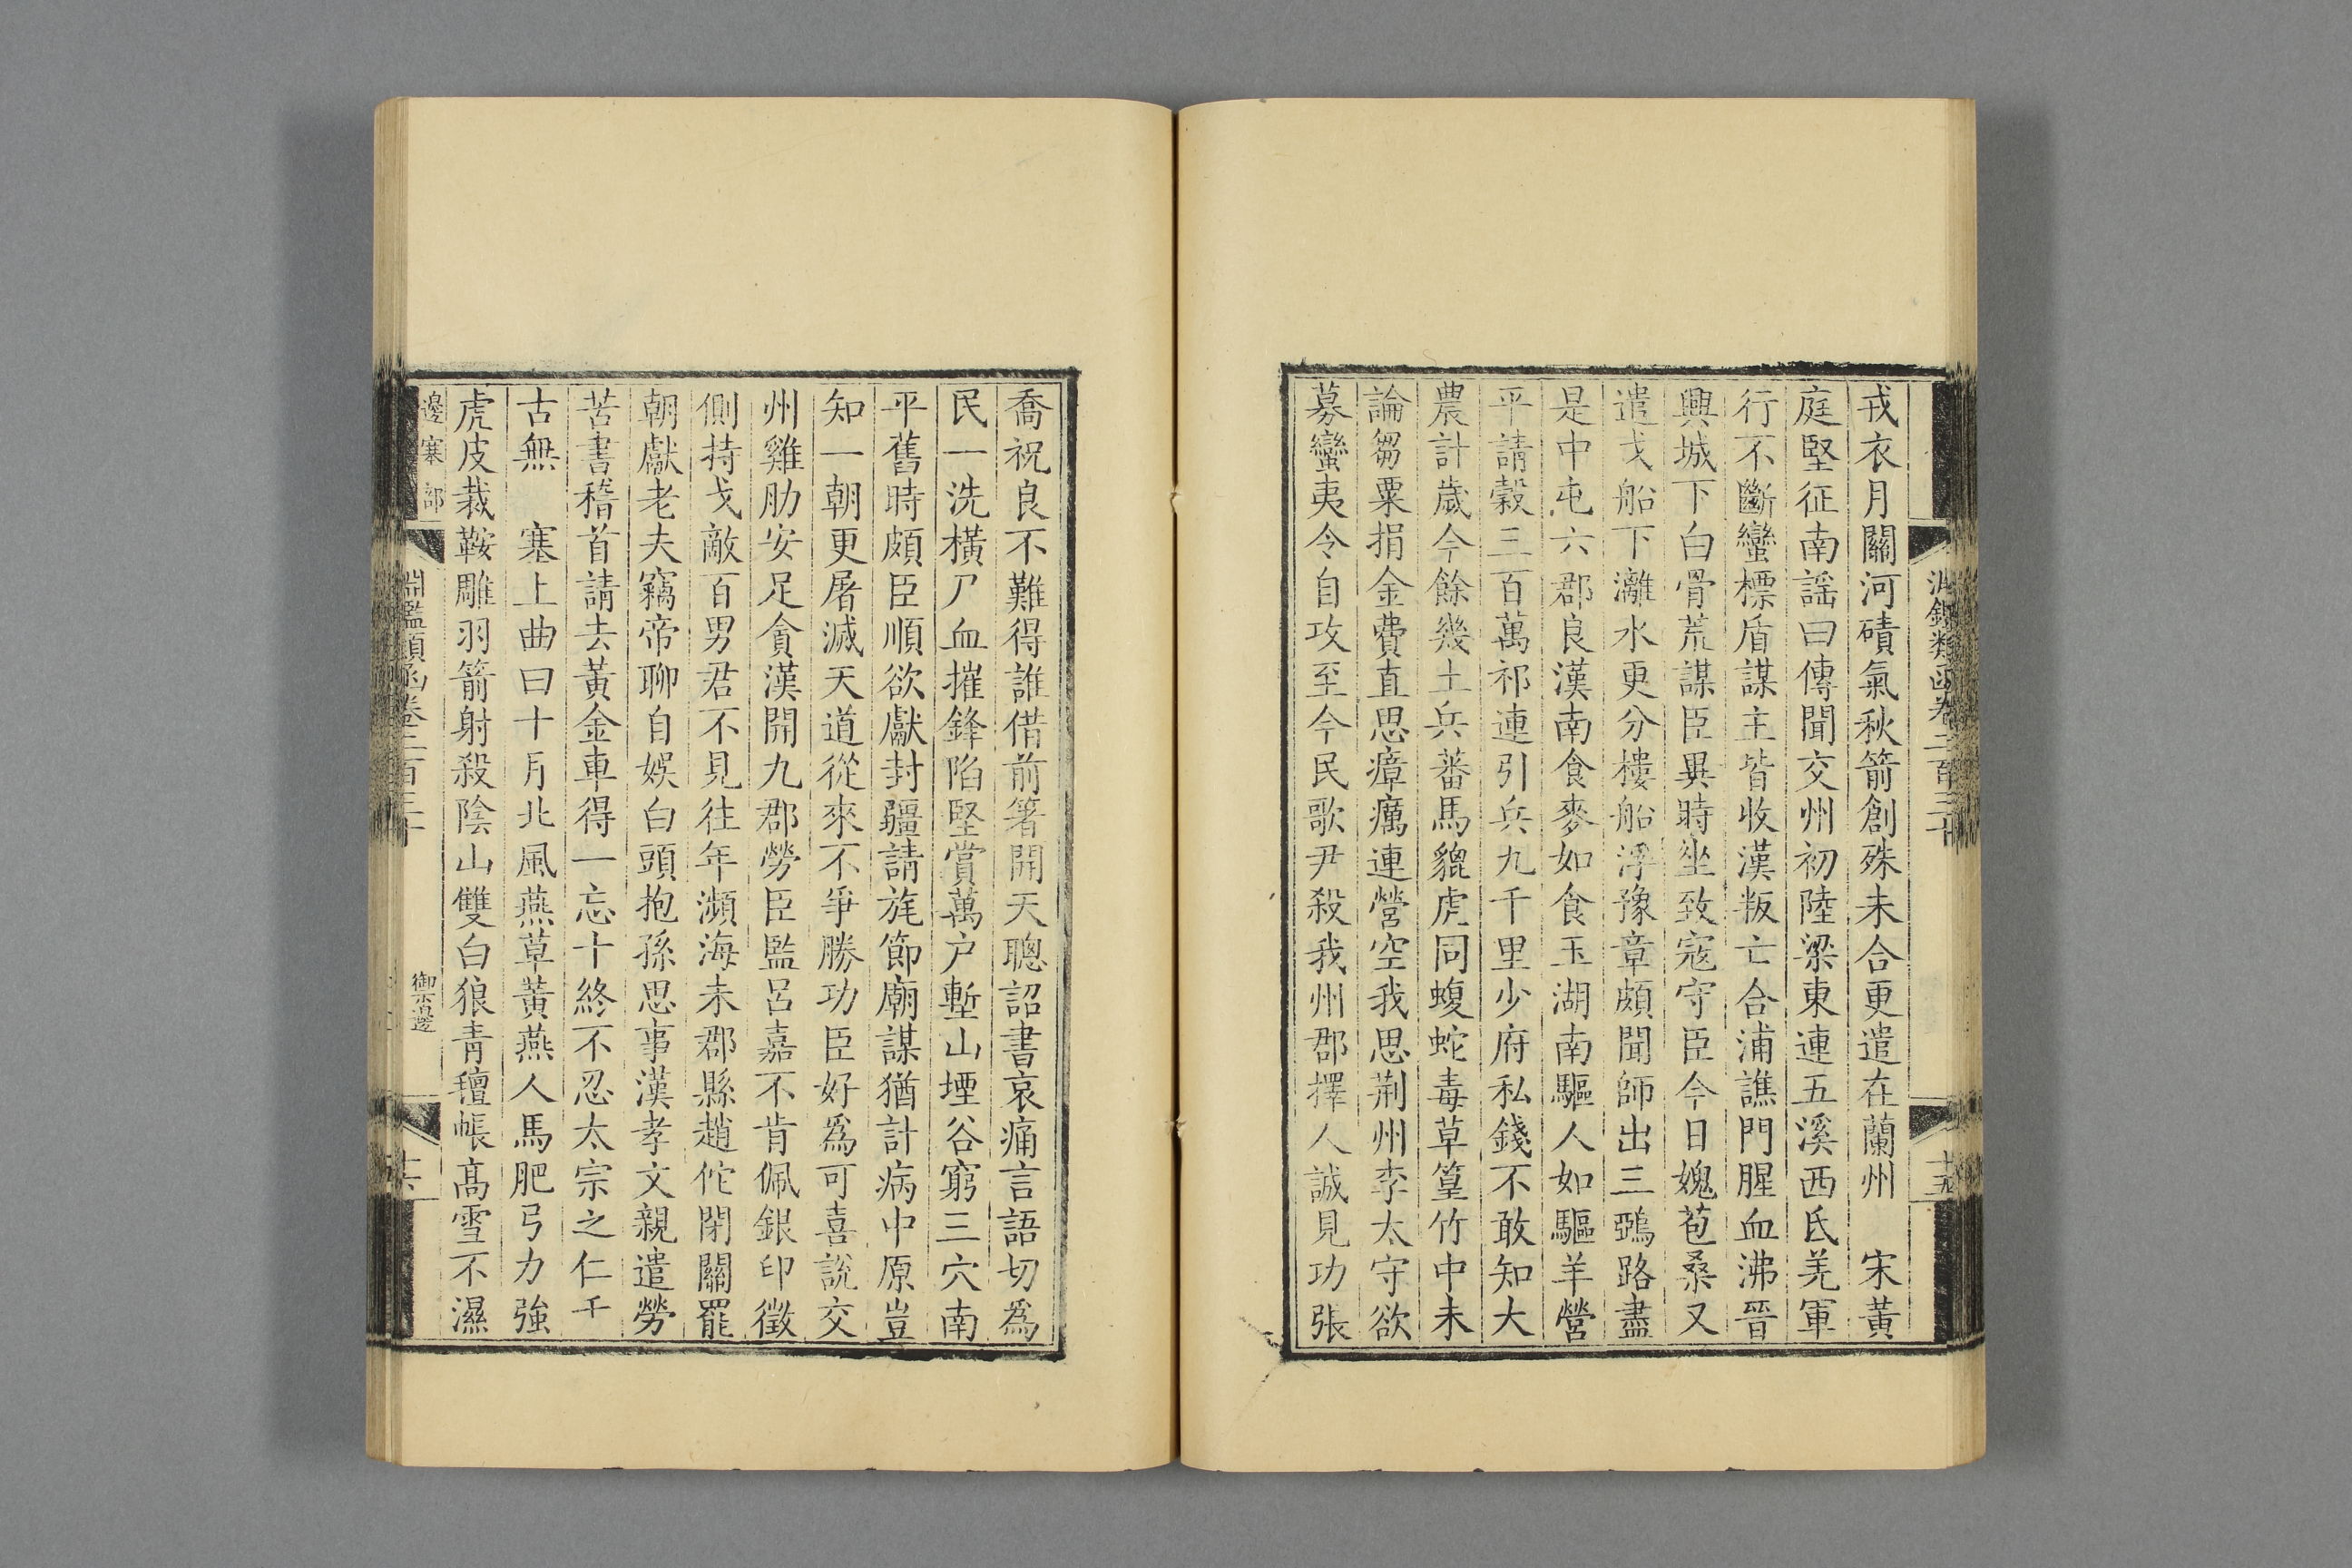 戎衣月關河磧氣秋箭創殊未合更遣在蘭州　宋黃
庭堅征南謡曰傳聞交州初陸梁東連五溪西氐羌軍
行不斷蠻標盾謀主皆收漢叛亡合浦譙門腥血沸晉
興城下白骨荒謀臣異時坐致寇守臣今日媿苞桑又
遣戈船下灕水更分樓船浮豫章頗聞師出三鵶路盡
是中屯六郡良漢南食麥如食玉湖南驅人如驅羊營
平請穀三百萬祁連引兵九千里少府私錢不敢知大
農計歲今餘幾土兵蕃馬貔虎同蝮蛇毒草篁竹中未
論芻粟捐金費直思瘴癘連營空我思荆州李太守欲
募蠻夷令自攻至今民歌尹殺我州郡擇人誠見功張
喬祝良不難得誰借前箸開天聰詔書哀痛言語切爲
民一洗橫尸血摧鋒陷堅賞萬户塹山堙谷窮三穴南
平舊時頗臣順欲獻封疆請旄節廟謀猶計病中原豈
知一朝更屠滅天道從來不爭勝功臣好爲可喜說交
州雞肋安足貪漢開九郡勞臣監呂嘉不肯佩銀印徵
側持戈敵百男君不見往年瀕海未郡縣趙佗閉關罷
朝獻老夫竊帝聊自娛白頭抱孫思事漢孝文親遣勞
苦書稽首請去黃金車得一忘十終不忍太宗之仁千
古無　塞上曲曰十月北風燕草黃燕人馬肥弓力強
虎皮裁鞍雕羽箭射殺陰山雙白狼青氊帳高雪不濕
邊塞部
淵鑑類函卷二百三十